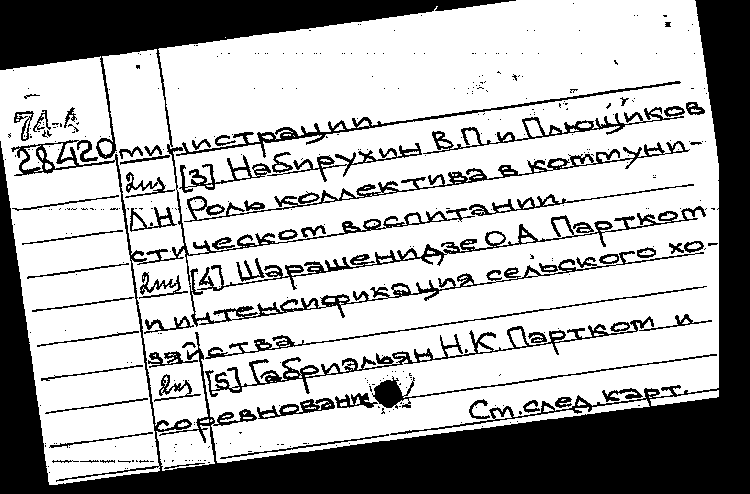 74-А
28420
министрации.
2из [3]. Набирухин В.П. и Плющиков
Л.Н. Роль коллектива в коммуни-
стическом воспитании.
2из [4]. Шарашенидзе О.А. Партком
и интенсификация сельского хо-
зяйства.
2из [5]. Габриэльян Н.К. Партком и
соревнование
См. след. карт.